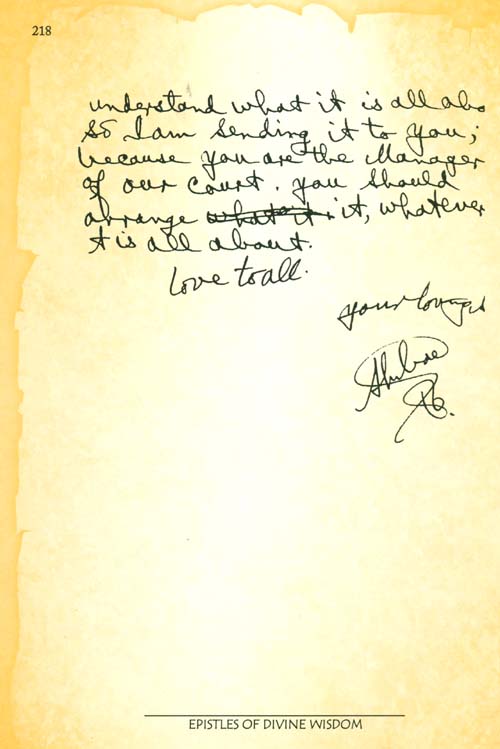 218
understand what it is all abo
So I am sending it to you;
because you are the Manager
of our court. you should
arrange what it it, whatever
it is all about.
Love to all.
your loving
EPISTLES OF DIVINE WISDOM